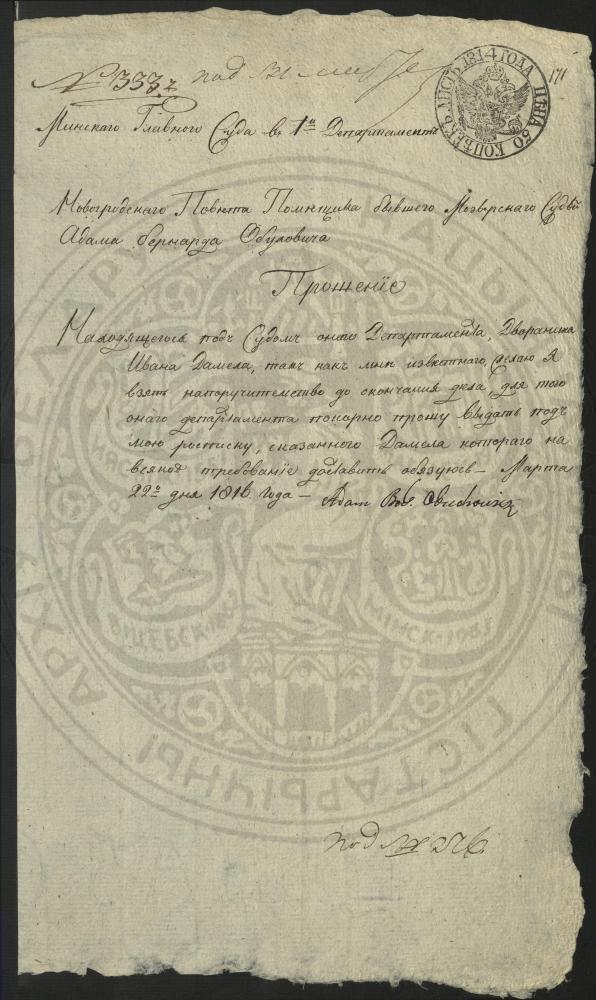 № 333
под
171
ЛИСТЪ 1814 ГОДА ЦѢНА 50 КОПѢЕКЪ
Минскаго Главнаго Суда в 1й Департаментъ
Новогродскаго Повѣта Помѣщика бывшего Мозырскаго Судьи
Адама Бернарда Обуховича
Прошеніе
Находящегося подъ Судомъ онаго Департамента, Дворанина
Ивана Дамела, такъ какъ мнѣ известнаго, желаю я
взять напоручительство до окончания дела, для того
онаго департамента покорно прошу выдать подъ
мою росписку, сказанного Дамела котораго на
всякое требованіе доставить обязуюсь – Марта
22го дня 1816 года – Adam
под
АРХІ
ГІСТАРЫЧНЫ
ВІЦЕБСК
МІНСК